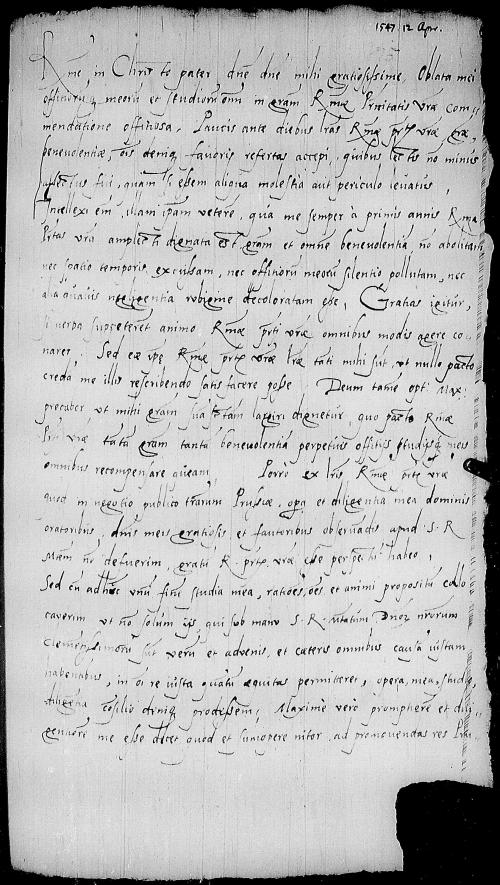 1547 12 Apr.
Rme in Christo pater dne dne mihi gratiosissime. Oblata mei
offitiorūq meorū et studiorū omī in gram Rmae Prnitatis Vrae com
mendatione offitiosa. Paucis ante diebus lras Rmae prtis vrae grae,
benevolentiae, ois deniq favoris refertas accepi, quibus lectis no minus
affectus fui, quam si essem aliqua molestia aut periculo levatus,
Intellexi em illam ipam veterē, qua me semper à primis annis Rma
Prtas vra amplecti dignata est, gram et omnē benevolentiā nō abolitam
nec spatio temporis excussam, nec offitiorū meorū silentio pollutam, nec
alia quavis negligentia rubigine decoloratam esse, Gratias igitur,
si verba suppeteret animo Rmae prti vrae omnibus modis agere co
narer. Sed eae ipae Rmae prtis vrae lrae tāti mihi sūt, ut nullo pacto
credā me illis rescribendo satisfacere posse Deum tamē opt: Max:
precaber ut mihi gram suā largiri dignetur, quo pacto Rmae
Prti vrae tātā gram tantā benevolentiā perpetuis offitijs studijsq meis
omnibus recompensare queam, Porro ex lris Rmae prtis vrae
quod in negotio publico terrarum Prussiae, operā et diligentiā meā dominis
oratoribus, dnis meis gratiosis et fautoribus observādis apud S. R
Mtem nō defuerim, gratū R. prti vrae esse perspectū habeo,
Sed cū ad hoc unū finē studia mea, ratioēs oēs et animi propositū collo
caverim ut nō solum ijs, qui sub manu S. R. Mtatum Dnoꝝ nrorum
Clementissimorū sūt verū et advenis, et caeteris omnibus causā iustam
habentibus, in oi re iusta quātū aequitas permitteret, opera, mea, studio,
diligētia cōsilio deniq prodessem, Maxime vero promptiorē et dili
gentiorē me esse decet quod et sumopere nitor, ad promovendas res